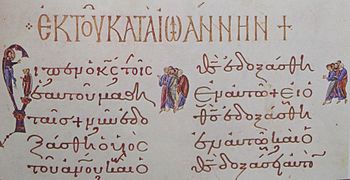 + ἐκ τοῦ κατὰ ἰωάννην +
Εἶπεν ὁ κ̅ς̅ τοῖς
ἑαυτοῦ μαθη
ταῖς + νῦν ἐδο
ξάσθη ὁ υἱὸς
τοῦ ἀν̅ο̅υ̅ καὶ ὁ
θ̅ς̅ ἐδοξάσθη
ἐν αὐτῶ + εἰ ὁ
θ̅ς̅ ἐδοξάσθη
ἐν αὐτῶ καὶ ὁ
θ̅ς̅ δοξάσει αὐτὸ